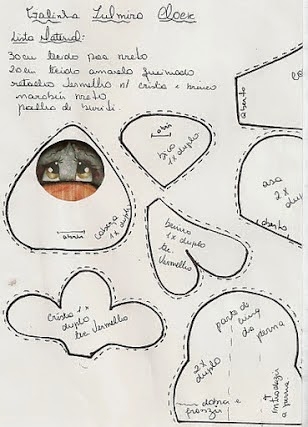 Galinha Zulmira Clock
Lista Material:
30cm tecido poá preto
20cm tecido amarelo queimado
retalho vermelho p/ crista e brinco
marabu preto
palha de buriti
aberto
abrir
bico
1x duplo
asa
2x
duplo
aberto
abrir
cabeça
1x duplo
brinco
1x duplo
tec
vermelho
crista 1x
duplo
tec vermelho
parte de cima
da perna
2x
duplo
dobra e
franzir
introduzir
a perna